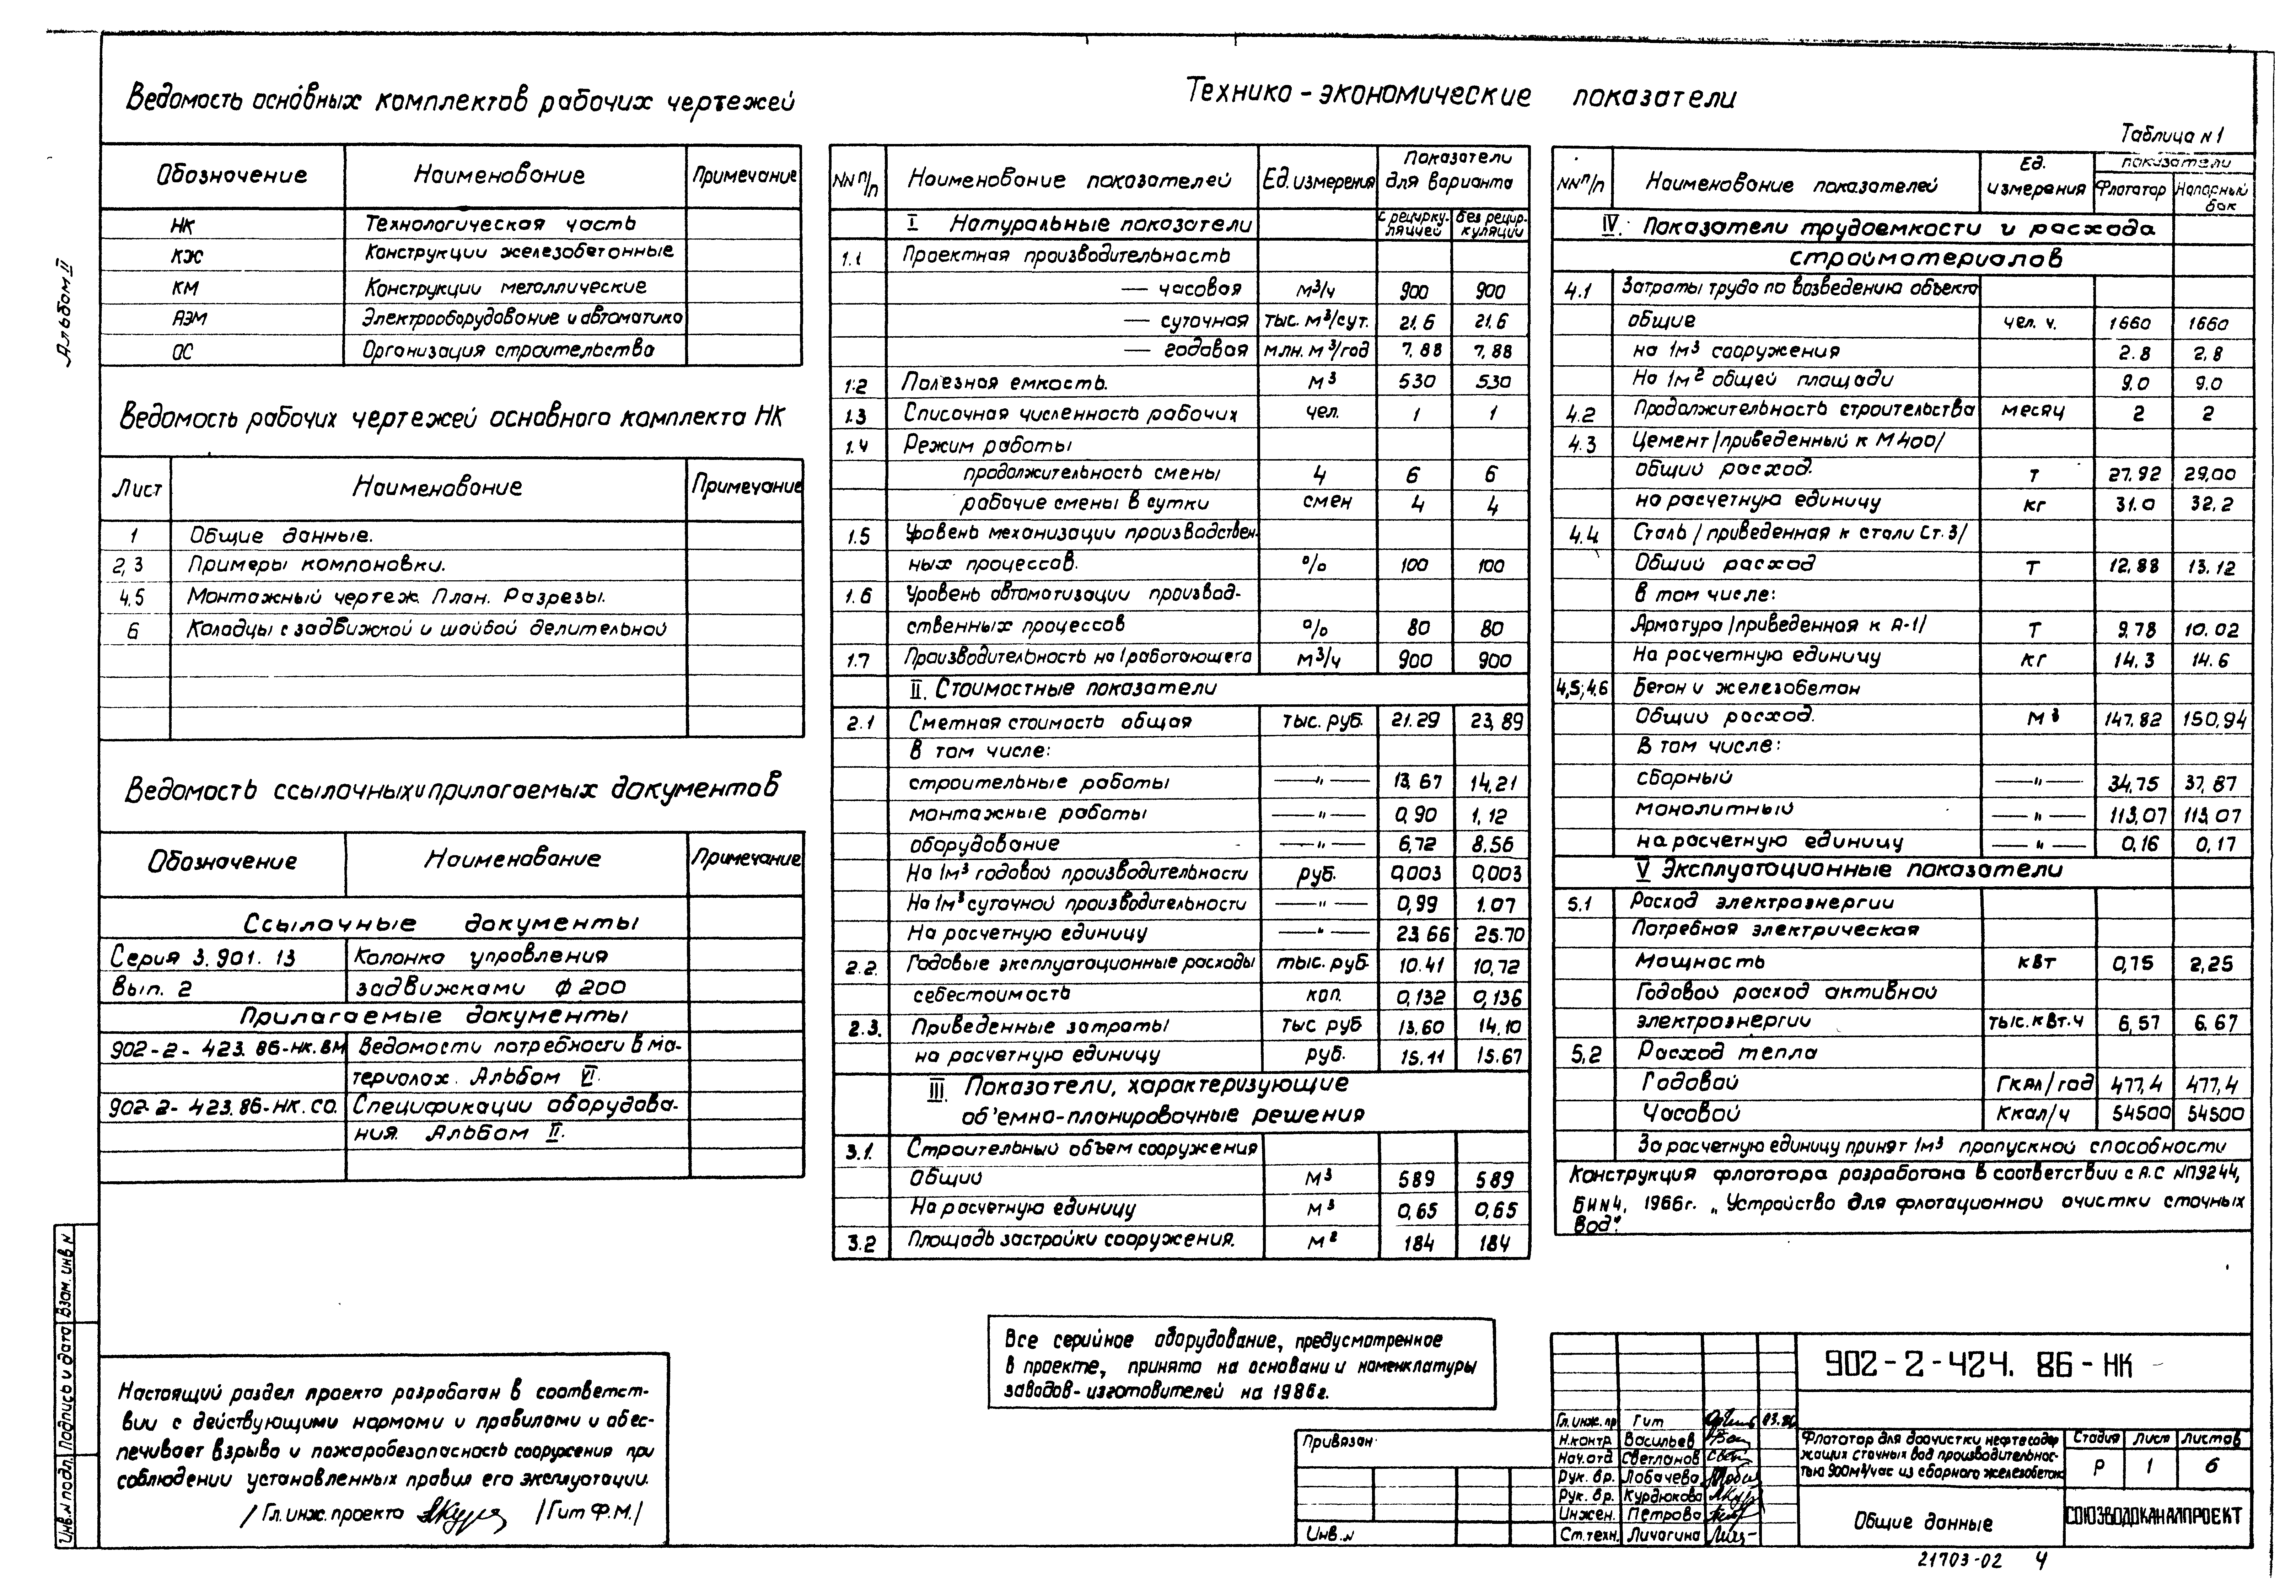 Альбом II
Ведомость основных комплектов рабочих чертежей
Обозначение Наименование Примечание
НК Технологическая часть
КЖ Конструкции железобетонные
КМ Конструкции металлические
АЭМ Электрооборудование и автоматика
ОС Организация строительства
Ведомость рабочих чертежей основного комплекта НК
Лист Наименование Примечание
1 Общие данные.
2,3 Примеры компоновки.
4,5 Монтажный чертеж. План. Разрезы.
6 Колодцы с задвижкой и шайбой делительной
Ведомость ссылочных и прилагаемых документов
Обозначение Наименование Примечание
Ссылочные документы
Серия 3.901.13 Колонка управления
Вып. 2 задвижками ф 200
Прилагаемые документы
902-2-423.86-НК.ВМ Ведомости потребности в ма-
териалах. Альбом VI.
902-2-423.86-НК.СО. Спецификации оборудова-
ния. Альбом II.
Технико-экономические показатели
Таблица N1
NN п/п Наименование показателей Ед. измерения Показатели для варианта
I Натуральные показатели с рецирку-ляцией без рецир-куляции
1.1 Проектная производительность
— часовая м³/ч 900 900
— суточная тыс. м³/сут. 21.6 21.6
— годовая млн. м³/год 7,88 7,88
1.2 Полезная емкость. м³ 530 530
1.3 Списочная численность рабочих чел. 1 1
1.4 Режим работы
продолжительность смены ч 6 6
рабочие смены в сутки смен 4 4
1.5 Уровень механизации производствен-
ных процессов. % 100 100
1.6 Уровень автоматизации производ-
ственных процессов % 80 80
1.7 Производительность на 1 работающего м³/ч 900 900
II. Стоимостные показатели
2.1 Сметная стоимость общая тыс. руб. 21.29 23,89
в том числе:
строительные работы —"— 13,67 14,21
монтажные работы —"— 0,90 1,12
оборудование —"— 6,72 8.56
На 1м³ годовой производительности руб. 0,003 0,003
На 1м³ суточной производительности —"— 0,99 1.07
На расчетную единицу —"— 23.66 25.70
2.2. Годовые эксплуатационные расходы тыс. руб. 10.41 10,72
себестоимость коп. 0,132 0,136
2.3. Приведенные затраты тыс руб 13,60 14,10
на расчетную единицу руб. 15.11 15.67
III. Показатели, характеризующие
об'емно-планировочные решения
3.1. Строительный объем сооружения
Общий м³ 589 589
На расчетную единицу м³ 0,65 0,65
3.2 Площадь застройки сооружения. м² 184 184
NN п/п Наименование показателей Ед. измерения показатели Флотатор Напорный бак
IV. Показатели трудоемкости и расхода
стройматериалов
4.1 Затраты труда по возведению объекта
общие чел. ч. 1660 1660
на 1м³ сооружения 2.8 2,8
На 1м² общей площади 9.0 9.0
4.2 Продолжительность строительства месяц 2 2
4.3 Цемент /приведенный к М400/
общий расход. т 27.92 29,00
на расчетную единицу кг 31.0 32,2
4.4 Сталь /приведенная к стали Ст.3/
Общий расход Т 12,88 13.12
в том числе:
Арматура /приведенная к А-1/ Т 9,78 10.02
На расчетную единицу кг 14.3 14.6
4,5;4.6 Бетон и железобетон
Общий расход. м³ 147,82 150,94
В том числе:
сборный —"— 34,75 37,87
монолитный —"— 113,07 113,07
на расчетную единицу —"— 0,16 0,17
V Эксплуатационные показатели
5.1 Расход электроэнергии
Потребная электрическая
Мощность квт 0,75 2,25
Годовой расход активной
электроэнергии тыс.квт.ч 6,57 6.67
5,2 Расход тепла
Годовой Гкал/год 477,4 477,4
Часовой Ккал/ч 54500 54500
За расчетную единицу принят 1м³ пропускной способности
Конструкция флотатора разработана в соответствии с А.С N179244,
БИ N4, 1966г. „Устройство для флотационной очистки сточных
вод".
Все серийное оборудование, предусмотренное
в проекте, принято на основании номенклатуры
заводов-изготовителей на 1986г.
Настоящий раздел проекта разработан в соответст-
вии с действующими нормами и правилами и обес-
печивает взрыво и пожаробезопасность сооружения при
соблюдении установленных правил его эксплуатации.
/Гл. инж. проекта /Гит Ф.М./
Инв. N подл. Подпись и дата Взам. инв N
Привязан
Инв. N
902-2-424. 86-НК
Гл. инж. пр Гит 03.86
Н.контр Васильев
Нач.отд Светланов
Рук. бр. Лобачева
Рук. бр. Курдюкова
Инжен. Петрова
Ст.техн. Личагина
Флотатор для доочистки нефтесодер
жащих сточных вод производительнос-
тью 900м³/час из сборного железобетона
Стадия Лист Листов
Р 1 6
Общие данные
СОЮЗВОДОКАНАЛПРОЕКТ
21703-02 4